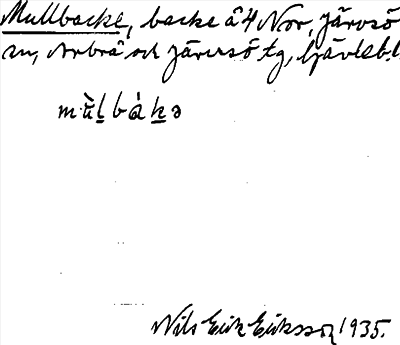 Mullbacke, backe å 4 Nor, Järvsö
sn, Arbrå och Järvsö tg, Gävleb. l.
mùl̲bàk̲ə
Nils Erik Eriksson 1935.